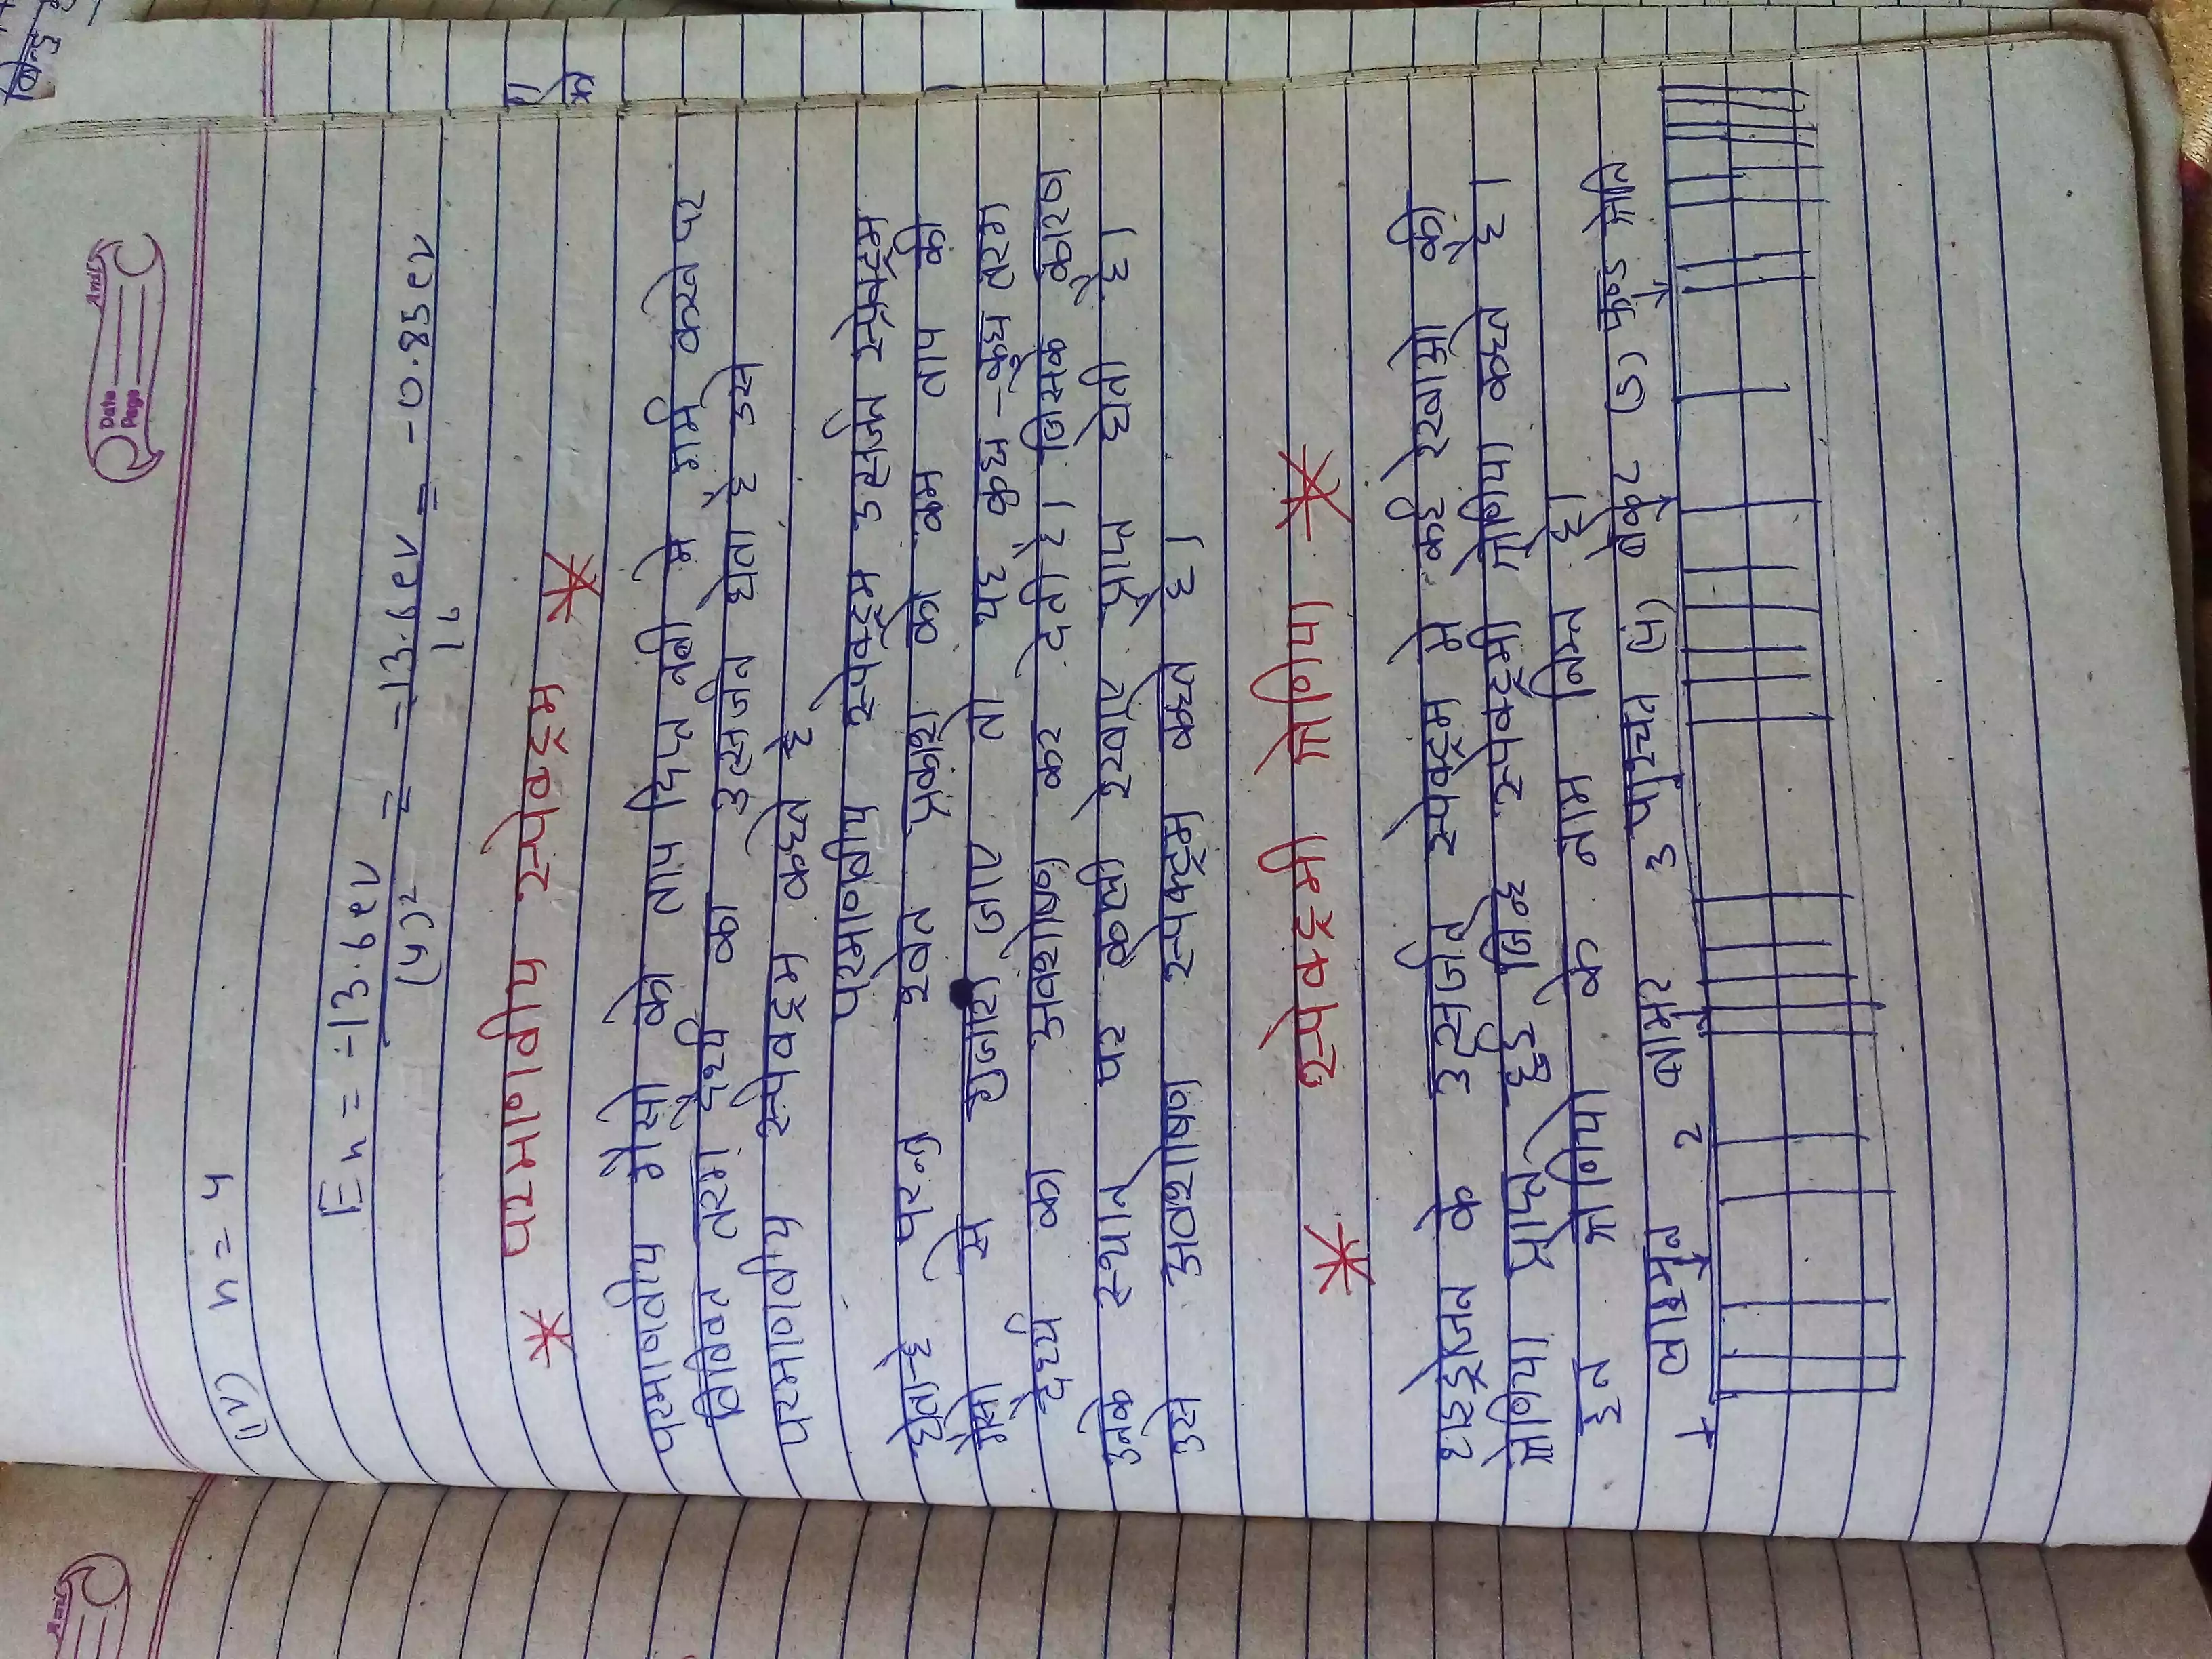 Date
Page
(iv) n = 4
En = -13.6 ev / (4)² = -13.6 ev / 16 = -0.85 ev
* परमाणवीय स्पेक्ट्रम *
परमाणवीय गैसो को ताप दिप्त नली मे गर्म करने पर
विविक्त तरंग दैर्ध्य का उत्सर्जन होता है उसे
परमाणवीय स्पेक्ट्रम कहते है
परमाणवीय स्पेक्ट्रम उत्सर्जन स्पेक्ट्रम
होता है परन्तु श्वेत प्रकाश को कम ताप की
गैसो से गुजारा जाए तो यह कुछ - कुछ तरंग
दैर्ध्य का अवशोषण कर देती है। जिसके कारण
उनके स्थान पर काली रेखाए प्राप्त होती है।
उसे अवशोषण स्पेक्ट्रम कहते है।
* स्पेक्ट्रमी श्रेणिया *
हाइड्रोजन के उत्सर्जन स्पेक्ट्रम मे कई रेखाओ की
श्रेणिया प्राप्त हुई जिन्हे स्पेक्ट्रमी श्रेणिया कहते है।
इन श्रेणियो के नाम निम्न है।
लाइमन 2 बामर 3 पाश्चन (4) ब्रेकेट (5) फुण्ड श्रेणि